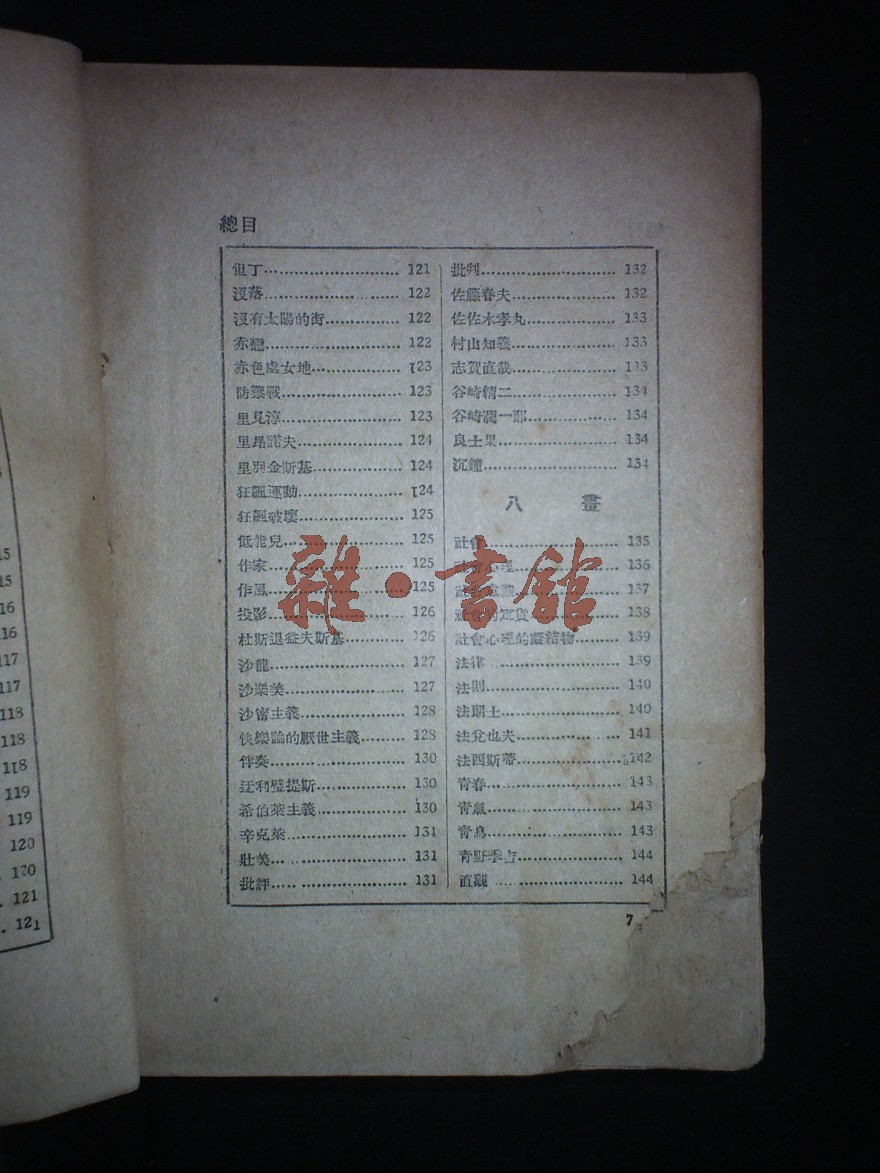 總目
但丁 121
沒落 122
沒有太陽的街 122
赤戀 122
赤色處女地 123
防禦戰 123
里見淳 123
里昂諾夫 124
里別金斯基 124
狂飆運動 124
狂飆破壞 125
低能兒 125
作家 125
作風 125
投影 126
杜斯退益夫斯基 126
沙龍 127
沙樂美 127
沙甯主義 128
快樂論的厭世主義 128
伴奏 130
迂利璧提斯 130
希伯萊主義 130
辛克萊 131
壯美 131
批評 131
批判 132
佐藤春夫 132
佐佐木孝丸 133
村山知義 133
志賀直哉 133
谷崎精二 134
谷崎潤一郎 134
良士果 134
沉鐘 134
八畫
社會 135
社會心理 136
137
138
社會心理的凝結物 139
法律 139
法則 140
法朗士 140
法兌也夫 141
法西斯蒂 142
青春 143
青氣 143
青鳥 143
青野季吉 144
直觀 144
7
雜·書館
15
15
16
116
117
117
118
118
118
119
119
120
120
121
121